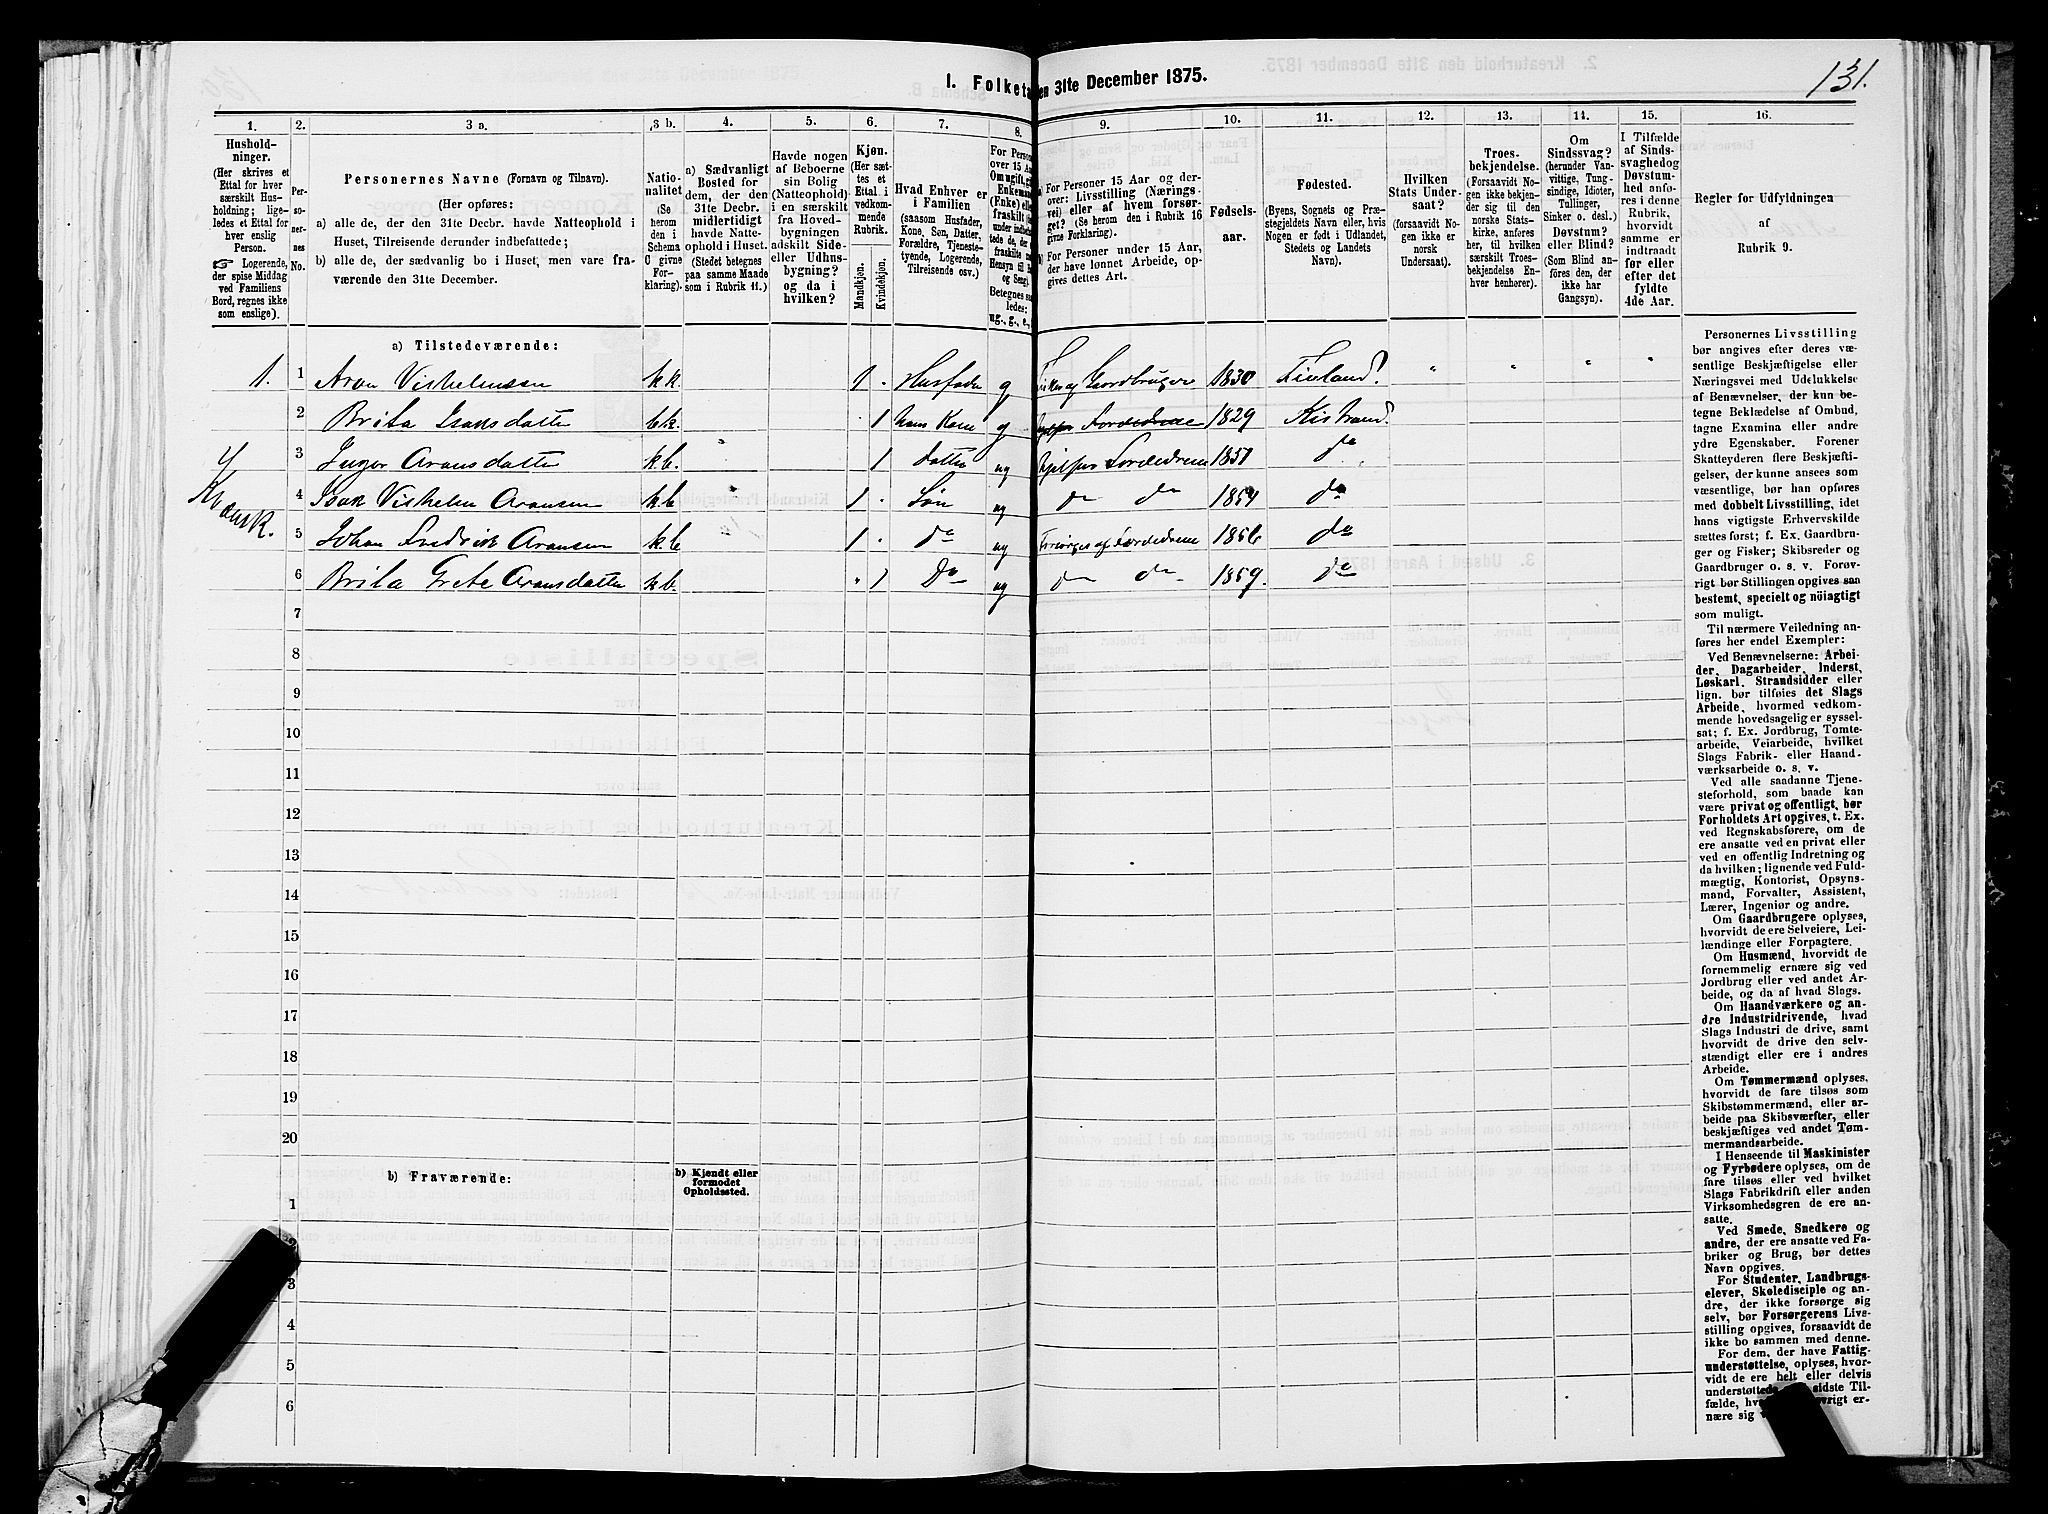 131.
I. Folketa en 31te December 1875.
1.
Hushold-
ninger.
(Her skrives et
Ettal for hver
særskilt Hus-
holdning; lige-
ledes et Ettal for
hver enslig
Person.
☞ Logerende,
der spise Middag
ved Familiens
Bord, regnes ikke
som enslige).
2.
Per-
so-
ner-
nes
No.
3 a.
Personernes Navne (Fornavn og Tilnavn).
(Her opføres:
a) alle de, der den 31te Decbr. havde Natteophold i
Huset, Tilreisende derunder indbefattede;
b) alle de, der sædvanlig bo i Huset, men vare fra-
værende den 31te December.
3 b.
Natio-
nalitet
(Se
herom
den i
Schema
C givne
For-
klaring).
4.
a) Sædvanligt
Bosted for
dem, der den
31te Decbr.
midlertidigt
havde Natte-
ophold i Huset.
(Stedet betegnes
paa samme Maade
som i Rubrik 11.)
5.
Havde nogen
af Beboerne
sin Bolig
(Natteophold)
i en særskilt
fra Hoved-
bygningen
adskilt Side-
eller Udhus-
bygning?
og da i
hvilken?
6.
Kjøn.
(Her sæt-
tes et
Ettal i
vedkom-
mende
Rubrik.
Mandkjøn.
Kvindekjøn.
7.
Hvad Enhver er
i Familien
(saasom Husfader,
Kone, Søn, Datter,
Forældre, Tjeneste-
tyende, Logerende,
Tilreisende osv.)
8.
For Person
over 15 Aa
Om ugift, gi
Enkema
(Enke) e
fraskilt
Hensyn til
og Seng).
Betegnes saa
ledes:
ug., g., e.,
9.
For Personer 15 Aar og der-
over: Livsstilling (Nærings-
vei) eller af hvem forsør-
get? (Se herom den i Rubrik 16
givne Forklaring).
For Personer under 15 Aar,
der have lønnet Arbeide, op-
gives dettes Art.
10.
Fødsels-
aar.
11.
Fødested.
(Byens, Sognets og Præ-
stegjeldets Navn eller, hvis
Nogen er født i Udlandet,
Stedets og Landets
Navn).
12.
Hvilken
Stats Under-
saat?
(forsaavidt No-
gen ikke er
norsk
Undersaat).
13.
Troes-
bekjendelse.
(Forsaavidt No-
gen ikke bekjen-
der sig til den
norske Stats-
kirke, anføres
her, til hvilken
særskilt Troes-
bekjendelse En-
hver henhører).
14.
Om
Sindssvag?
(herunder Van-
vittige, Tung-
sindige, Idioter,
Tullinger,
Sinker o. desl.)
Døvstum?
eller Blind?
(Som Blind an-
føres den, der
ikke har
Gangsyn).
15.
I Tilfælde
af Sinds-
svaghed og
Døvstum-
hed anfø-
res i denne
Rubrik,
hvorvidt
samme er
indtraadt
før eller
efter det
fyldte
4de Aar.
16.
Regler for Udfyldningen
af
Rubrik 9.
a) Tilstedeværende:
1. 1 Aron Vilhelmsen k.k. 1 . Husfader g og Gaardbruger 1830 Finland! " " " "
2 Brita Isaksdatter k.k. . 1 hans Kone g 1829 Kistrand.
3 Inger Aransdatter k.b. 1 Datter ug hjelper Forældrene 1851 do
4 Isak Vilhelm Aransen k.b. 1 . Søn ug do do 1854 do
Kvænsk.
5 Johan Fredrik Aransen k.b 1 . do ug Forsørges af Forældrene 1856 do
6 Brita Grete Aransdatter k.b. . 1 Do ug do do 1859. do
7
8
9
10
11
12
13
14
15
16
17
18
19
20
b) Fraværende:
b) Kjendt eller
formodet
Opholdssted.
1
3
4
5
6
Personernes Livsstilling
bør angives efter deres væ-
sentlige Beskjæftigelse eller
Næringsvei med Udelukkelse
af Benævnelser, der kun be-
tegne Beklædelse af Ombud,
tagne Examina eller andre
ydre Egenskaber. Forener
Skatteyderen flere Beskjæfti-
gelser, der kunne ansees som
væsentlige, bør han opføres
med dobbelt Livsstilling, idet
hans vigtigste Erhvervskilde
sættes først; f. Ex. Gaardbru-
ger og Fisker; Skibsreder og
Gaardbruger o. s. v. Forøv-
rigt bør Stillingen opgives saa
bestemt, specielt og nöiagtigt
som muligt.
Til nærmere Veiledning an-
føres her endel Exempler:
Ved Benævnelserne: Arbei-
der, Dagarbeider, Inderst,
Løskarl, Strandsidder eller
lign. bør tilføies det Slags
Arbeide, hvormed vedkom-
mende hovedsagelig er syssel-
sat; f. Ex. Jordbrug, Tomte-
arbeide, Veiarbeide, hvilket
Slags Fabrik- eller Haand-
værksarbeide o. s. v.
Ved alle saadanne Tjene-
steforhold, som baade kan
være privat og offentligt, bør
Forholdets Art opgives, t. Ex.
ved Regnskabsførere, om de
ere ansatte ved en privat eller
ved en offentlig Indretning og
da hvilken; lignende ved Fuld-
mægtig, Kontorist, Opsyns-
mand, Forvalter, Assistent,
Lærer, Ingeniør og andre.
Om Gaardbrugere oplyses,
hvorvidt de ere Selveiere, Lei-
lændinge eller Forpagtere.
Om Husmænd, hvorvidt de
fornemmelig ernære sig ved
Jordbrug eller ved andet Ar-
beide, og da af hvad Slags.
Om Haandværkere og an-
dre Industridrivende, hvad
Slags Industri de drive, samt
hvorvidt de drive den selv-
stændigt eller ere i andres
Arbeide.
Om Tømmermænd oplyses,
hvorvidt de fare tilsøs som
Skibstømmermænd, eller ar-
beide paa Skibsværfter, eller
beskjæftiges ved andet Tøm-
mermandsarbeide.
I Henseende til Maskinister
og Fyrbødere oplyses, om de
fare tilsøs eller ved hvilket
Slags Fabrikdrift eller anden
Virksomhedsgren de ere an-
satte.
Ved Smede, Snedkere og
andre, der ere ansatte ved Fa-
briker og Brug, bør dettes
Navn opgives.
For Studenter, Landbrugs-
elever, Skoledisciple og an-
dre, der ikke forsørge sig
selv, bør Forsørgerens Livs-
stilling opgives, forsaavidt de
ikke bo sammen med denne.
For dem, der have Fattig-
understøttelse, oplyses, hvor-
vidt de ere helt eller delvis
understøttede sidste Til-
fælde, hv vrigt er-
nære sig